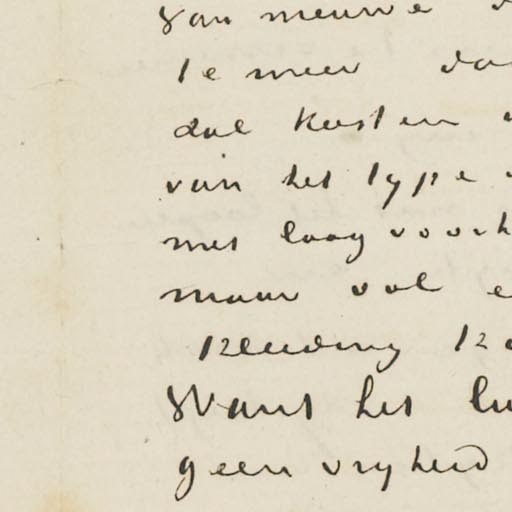 van nieuwe
te meer
dat kosten
van het type
met laag voorh
maar vol e
kleuding ko
Want het lu
geen vryheid